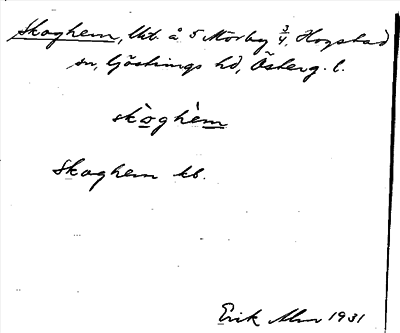 Skoghem, lht. å 5 Mörby 3/4, Hogstad
sn, Göstrings hd, Österg. l.
skòghèm
Skoghem kb.
Erik Alm 1931